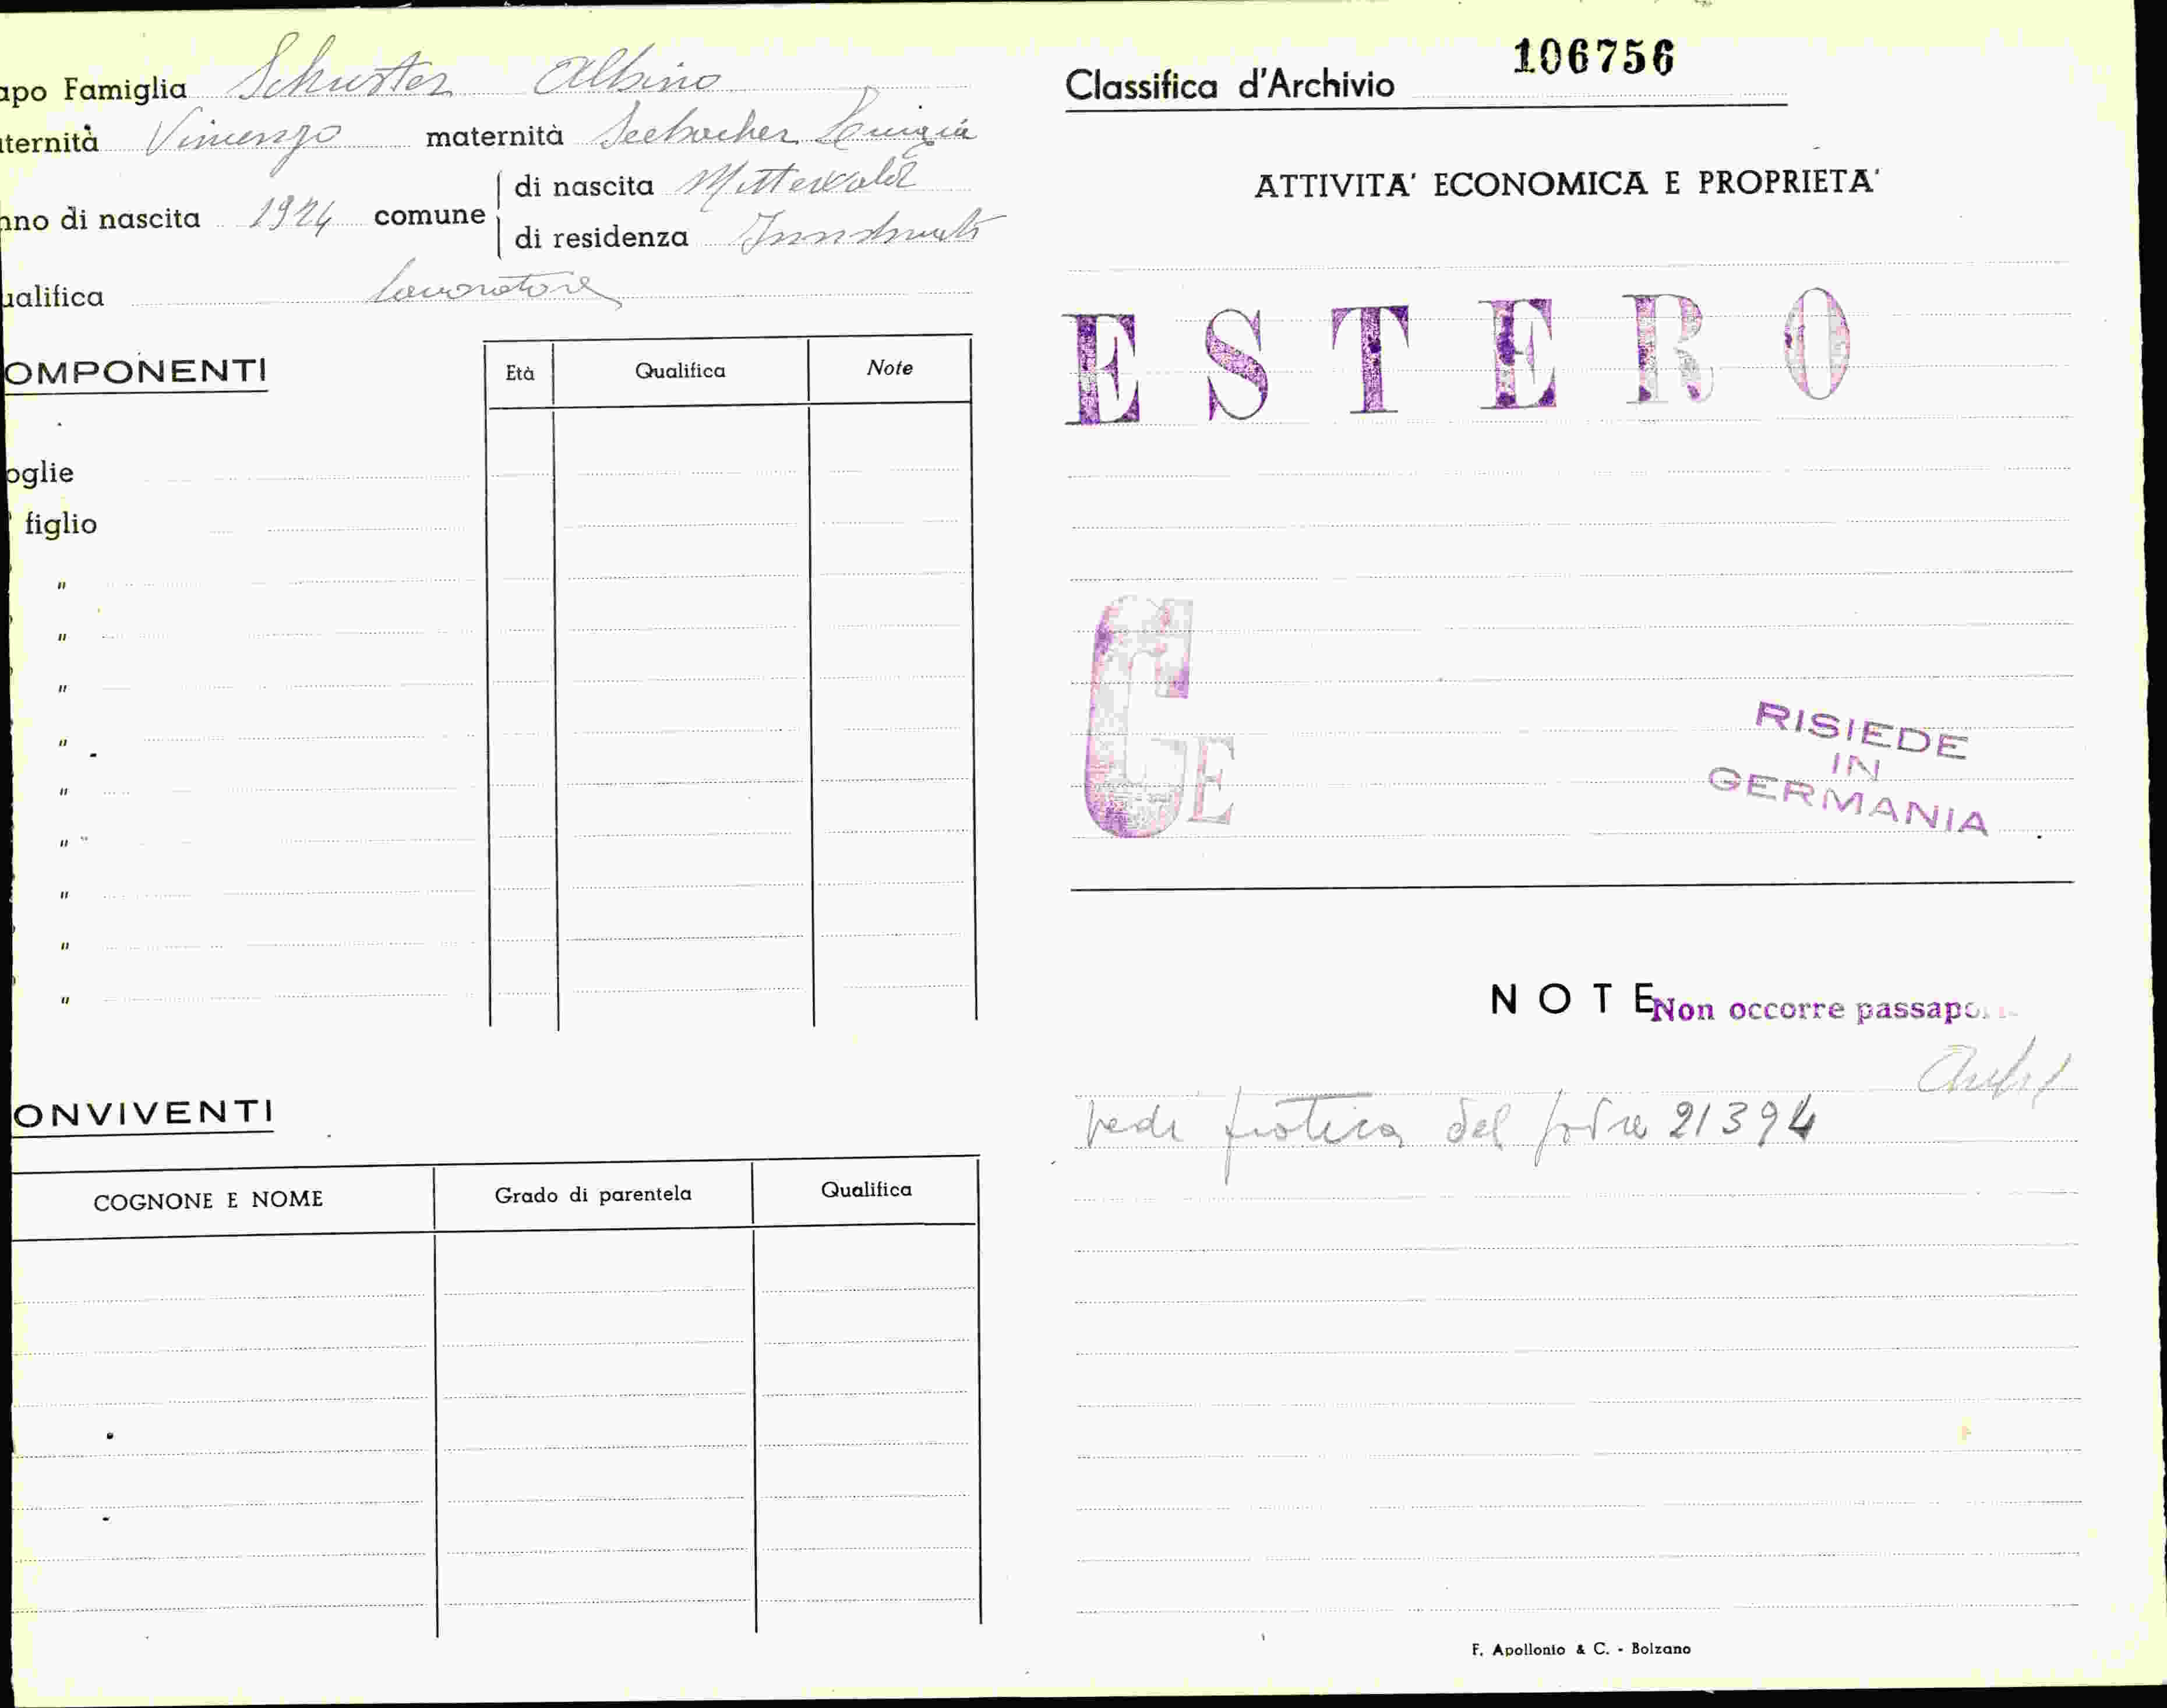 apo Famiglia Schuster Albino
ternità Vincenzo maternità Seebacher Luigia
nno di nascita 1924 comune di nascita Mittewald
di residenza Innsbruck
ualifica lavoratore
OMPONENTI Età Qualifica Note
oglie
figlio
"
"
"
"
"
"
"
"
"
ONVIVENTI
COGNONE E NOME Grado di parentela Qualifica
106756
Classifica d'Archivio
ATTIVITA' ECONOMICA E PROPRIETA'
ESTERO
CE
RISIEDE
IN
GERMANIA
NOTE Non occorre
vedi pratica del padre 21394
F. Apollonio & C. - Bolzano